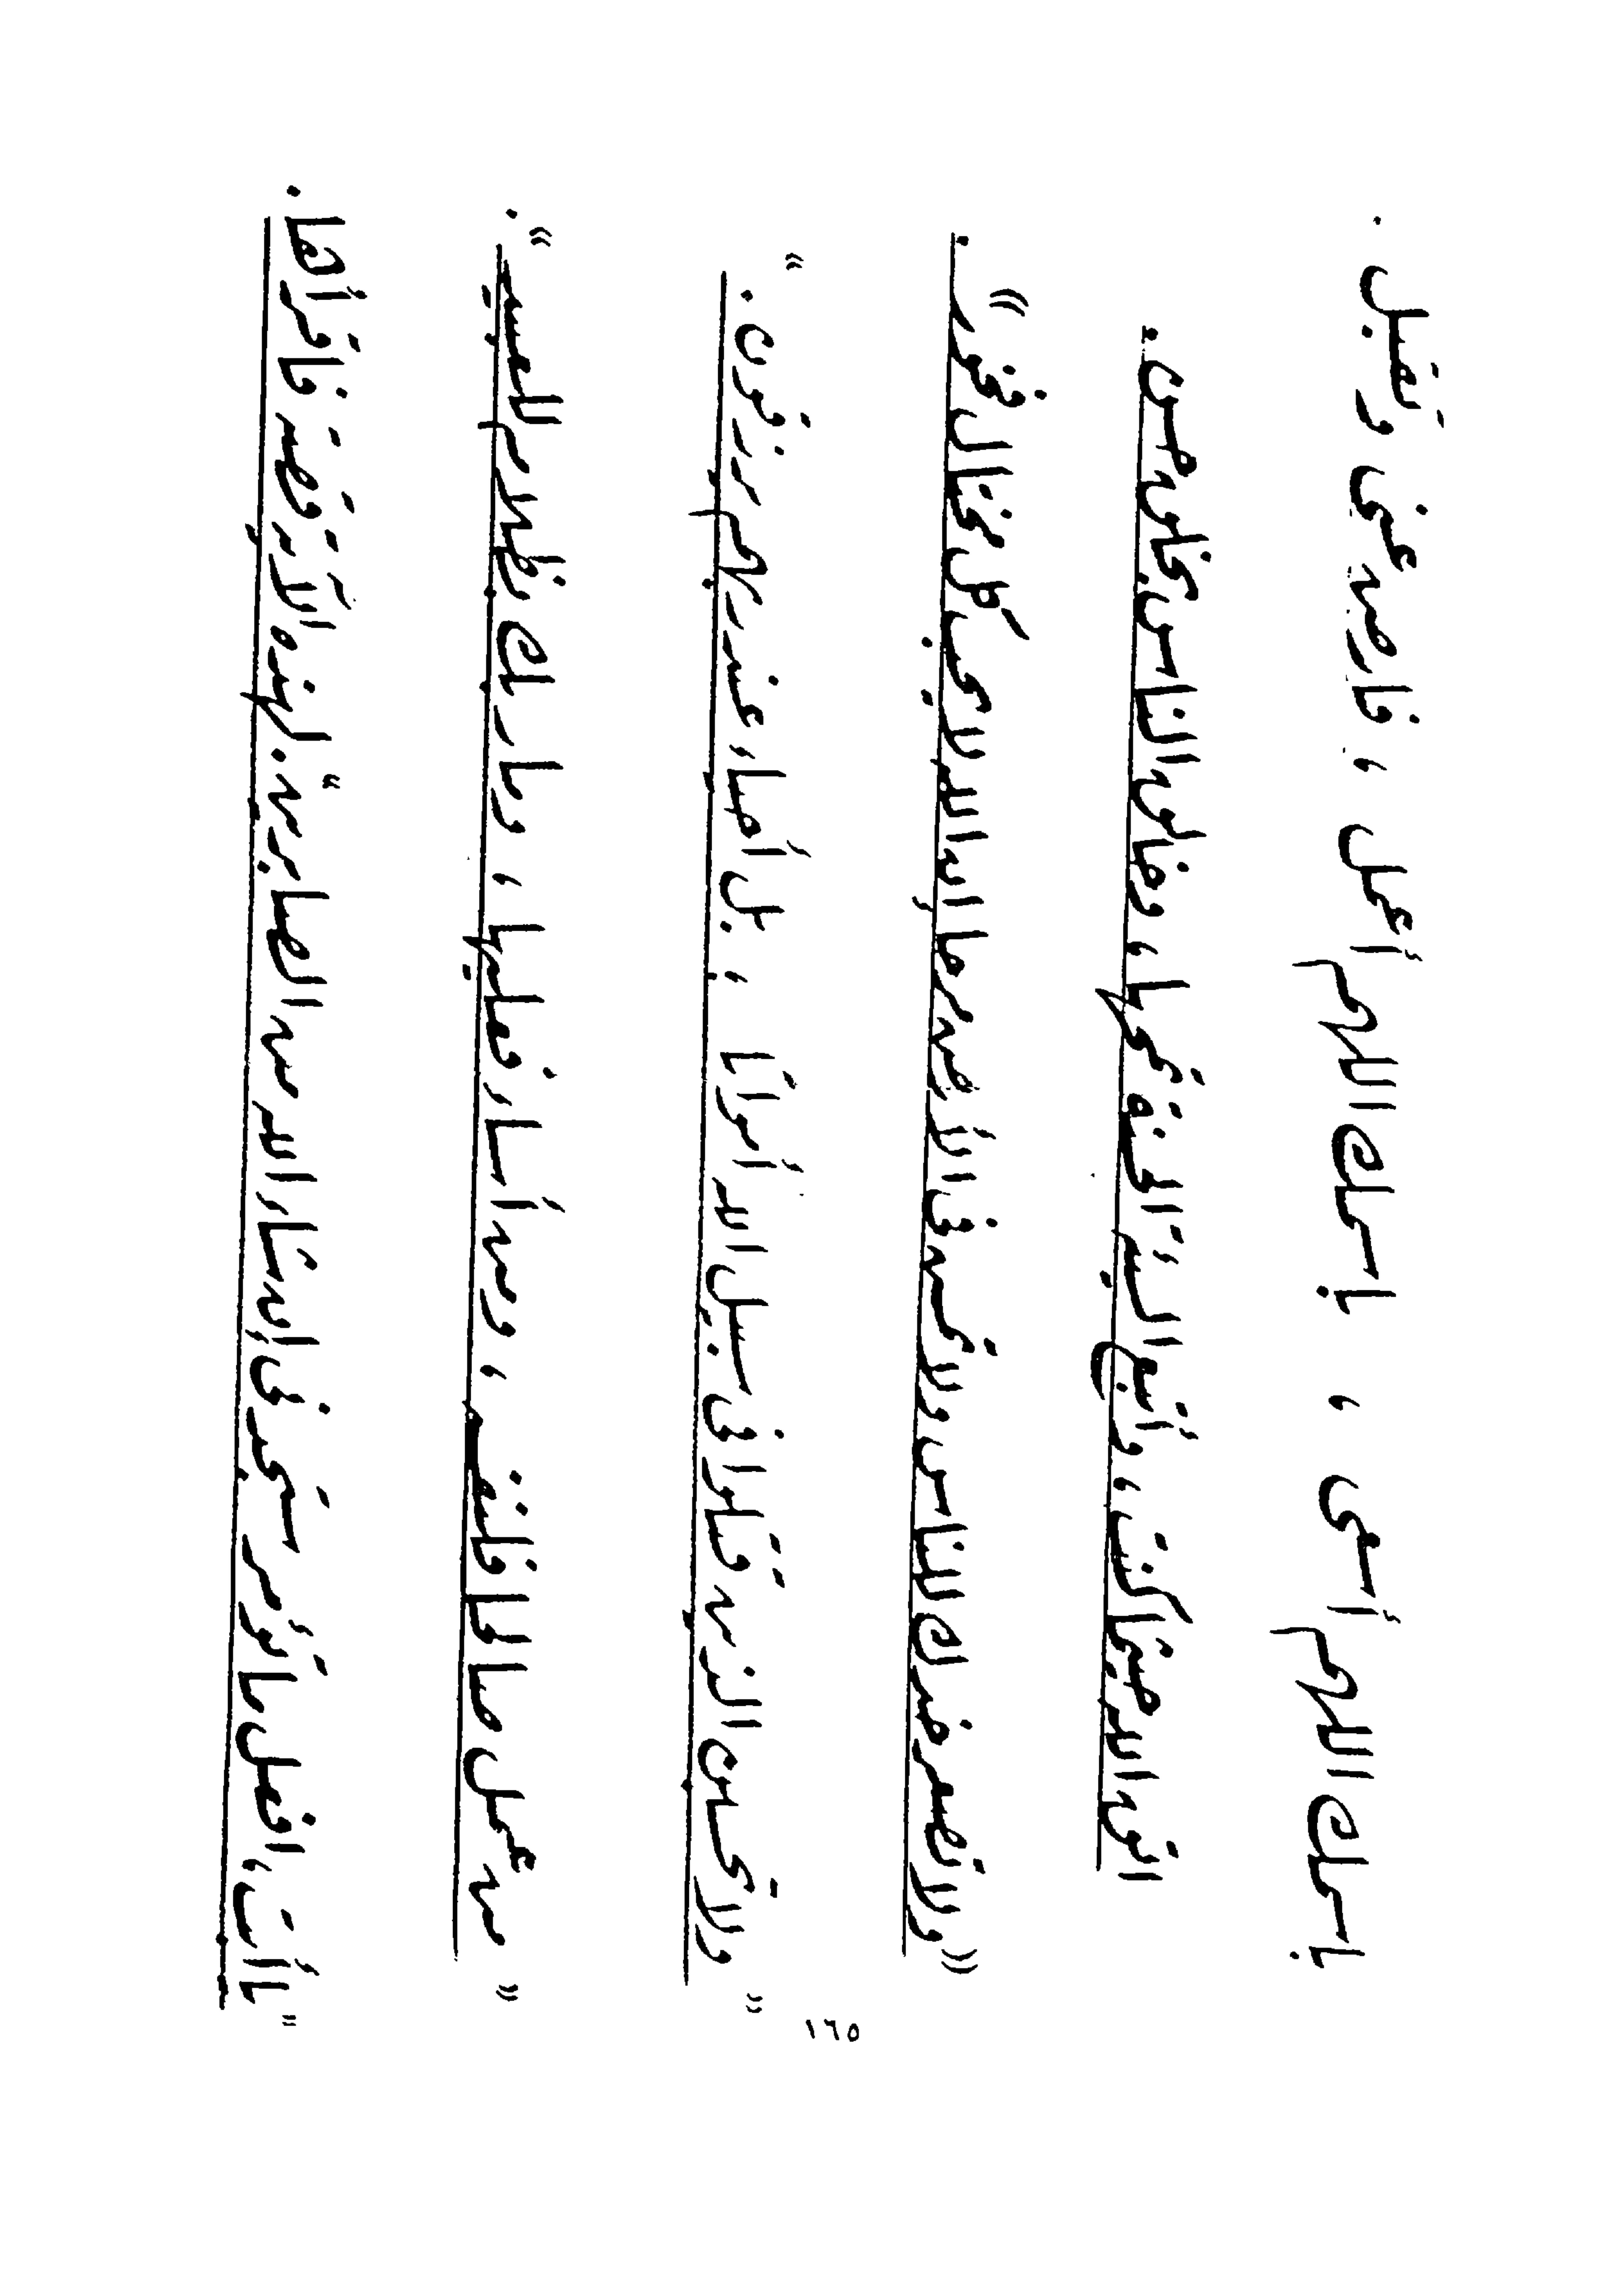 باسمك اللهم أسعى ، باسمك اللهم أعمل ، فارض عنى وتقبل .
اتق الله حيثما كنت ، وأتبع السيئة الحسنة تمحها ، وخالق الناس بخلق حسن .
((ولا تصعر خدك للناس ولا تمش فى الأرض مرحا إن الله لا يحب كل مختال فخور)) .
"ولا تحسبن الذين قتلوا فى سبيل الله أمواتا ، بل أحياء عند ربهم يرزقون . "
"من عمل صالحا فلنفسه ، ومن أساء فعليها ، وما ربك بظلام للعبيد" .
"يا أبت ، افعل ما تؤمر ستجدنى إن شاء الله من الصابرين" . لهذه الآية قصة فاقرأها .
١٦٥